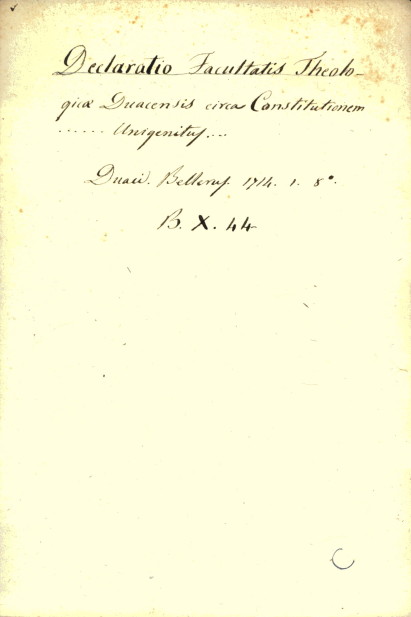 Declaratio Facultatis Theolo-
gicæ Duacensis circa Constitutionem
...... Unigenitus...
Duaci. Bellerus. 1714. 1. 8°.
B. X. 44
C